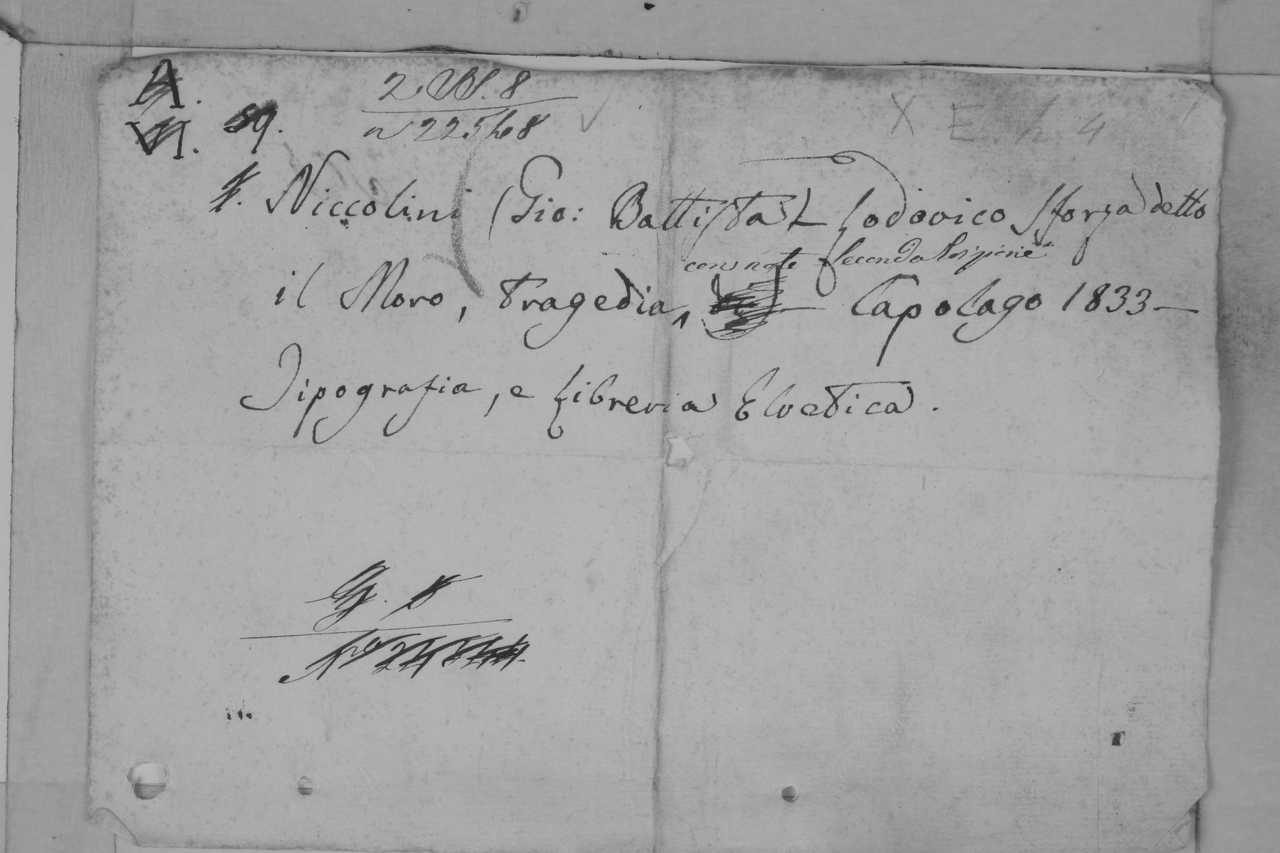 A.
VI. 59.
2. W. 8
X E. h. 4
Niccolini (Gio: Battista) Lodovico Sforza detto
il Moro, Tragedia, con note Seconda Edizione Capolago 1833 —
Tipografia, e Libreria Elvetica.